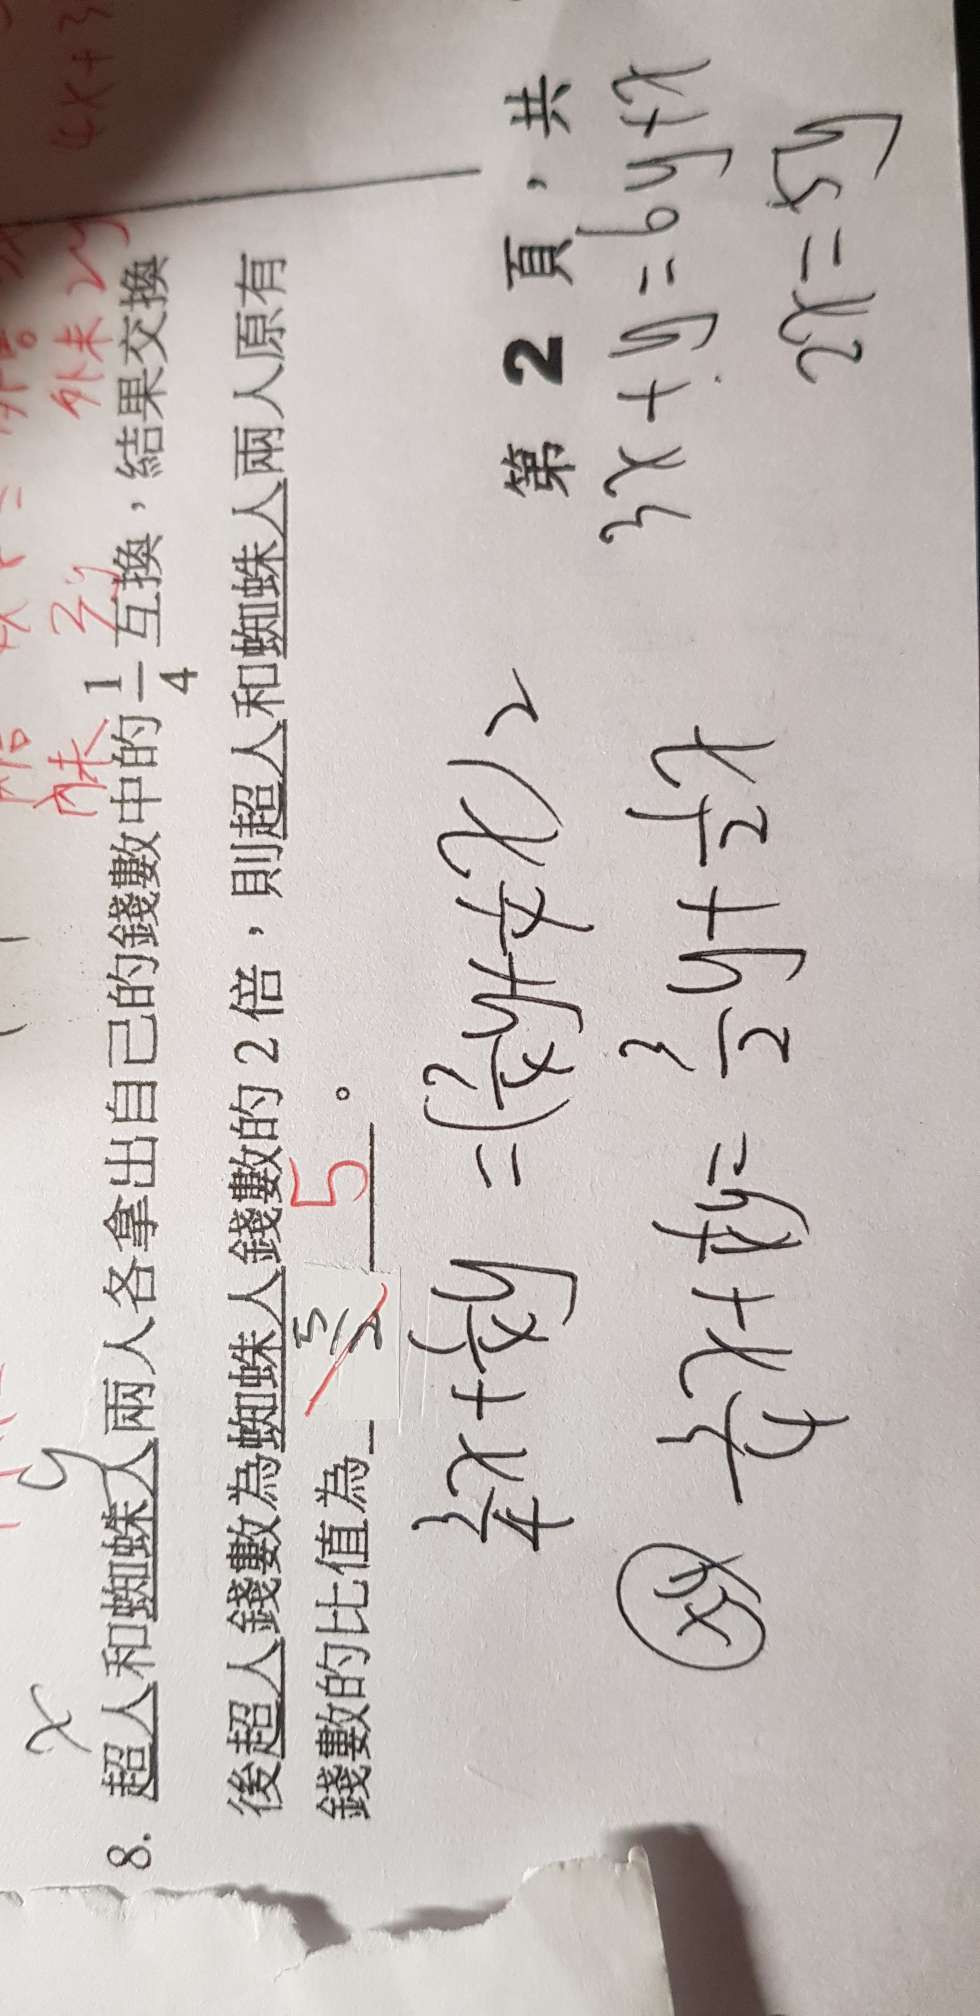 x
y
8. 超人和蜘蛛人兩人各拿出自己的錢數中的 1/4 互換，結果交換
後超人錢數為蜘蛛人錢數的 2 倍，則超人和蜘蛛人兩人原有
錢數的比值為 5/2 5 。
3/4 x + 1/4 y = (3/4 y + 1/4 x) 2
x4 3/4 x + 1/4 y = 3/2 y + 1/2 x
第 2 頁，共
3x + y = 6y + x
2x = 5y
4x + 3
妹
外未 2y